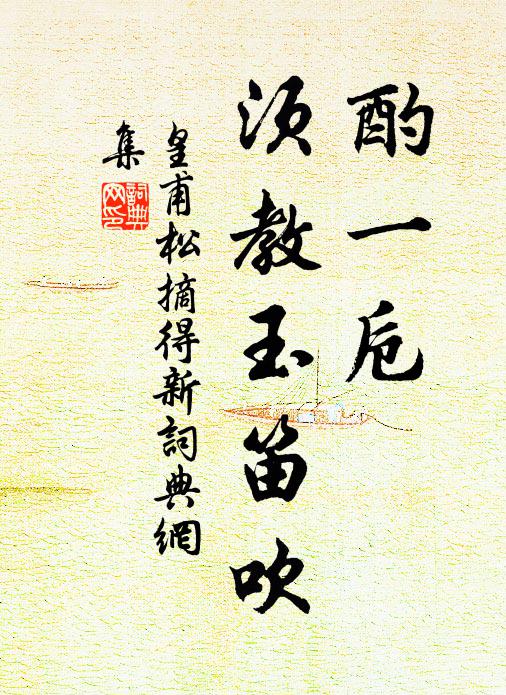 酌一卮
須教玉笛吹
皇甫松摘得新詞典網
集
詞典网印